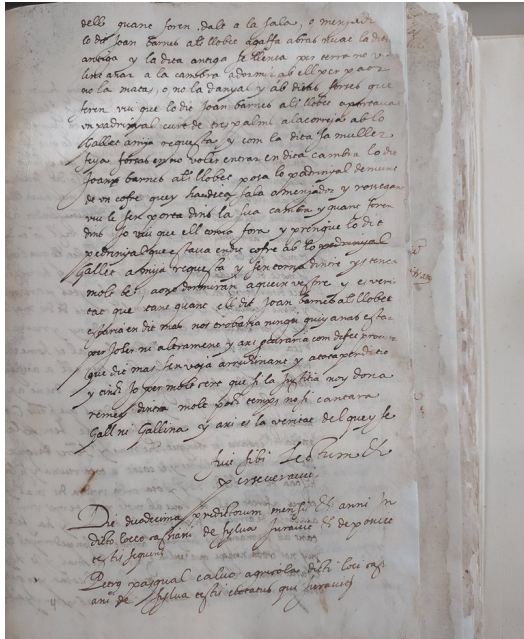 dells quant foren dalt a la sala, o menjador
lo dit Joan barnes als llobet agaffa abras la dita
antiga y la dita antiga se llença per terra no
anar a la cambra a dormir ab ell per paor
no la matas, o no la danyas y ab dites forses que
feren viu que lo dit Joan barnes als llobet aportava
un padrinyal curt de tres palms a la correja ab lo
Gallet amija requesta, y com la dita sa muller
feya forsas en no voler entrar en dita cambra lo dit
Joan barnes als llobet posa lo padrinyal demunt
de un cofre que y havia sala o menjador y
viu le sen porta dins la sua cambra y quant foren
dins Jo viu que ell torna fora y prengue lo dit
padrinyal que estava en dit cofre ab lo padrinyal
Gallet amija requesta y sen torna dintre y tenca
molt be, aont dormiren aquein vespre y es veri
tat que tant quant ell dit Joan barnes als llobet
estara en dit mas nos trobaria ningu qui y anas estar
per Joler ni altrament y axi
que dit mas sen vaja arruinant y a tota perditio
y tinch Jo per molt cert que si la Justitia noy dona
remey dintra molt poch temps noy cantara
Gall ni Gallina y axi es la veritat del que y se
fuit sibi lectum et
perseveravit
Die duodecima preditorum mensis et anni In
dicto loco castriani de sylva Juravit et deposuit
testis sequens
Petrus pasqual calvo agricola dicti loci cast
ani de sylva testis citatus qui Juravit